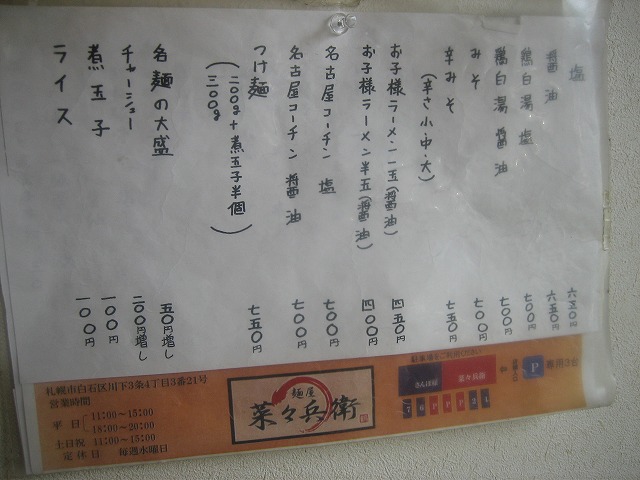 塩
醤油 六五〇円
鶏白湯 塩 七〇〇円
鶏白湯 醤油 七〇〇円
みそ 七〇〇円
辛みそ 七五〇円
(辛さ小・中・大)
お子様ラーメン一玉(醤油) 四五〇円
お子様ラーメン半玉(醤油) 四〇〇円
名古屋コーチン 塩 七〇〇円
名古屋コーチン 醤油 七〇〇円
つけ麺 七五〇円
(二〇〇g+煮玉子半個)
三〇〇g
各麺の大盛 五〇円増し
チャーシュー 二〇〇円増し
煮玉子 一〇〇円
ライス 一〇〇円
札幌市白石区川下3条4丁目3番21号
営業時間
平日 11:00~15:00
18:00~20:00
土日祝 11:00~15:00
定休日 毎週水曜日
麺屋
菜々兵衛
駐車場をご利用ください
菜々兵衛
P 専用3台